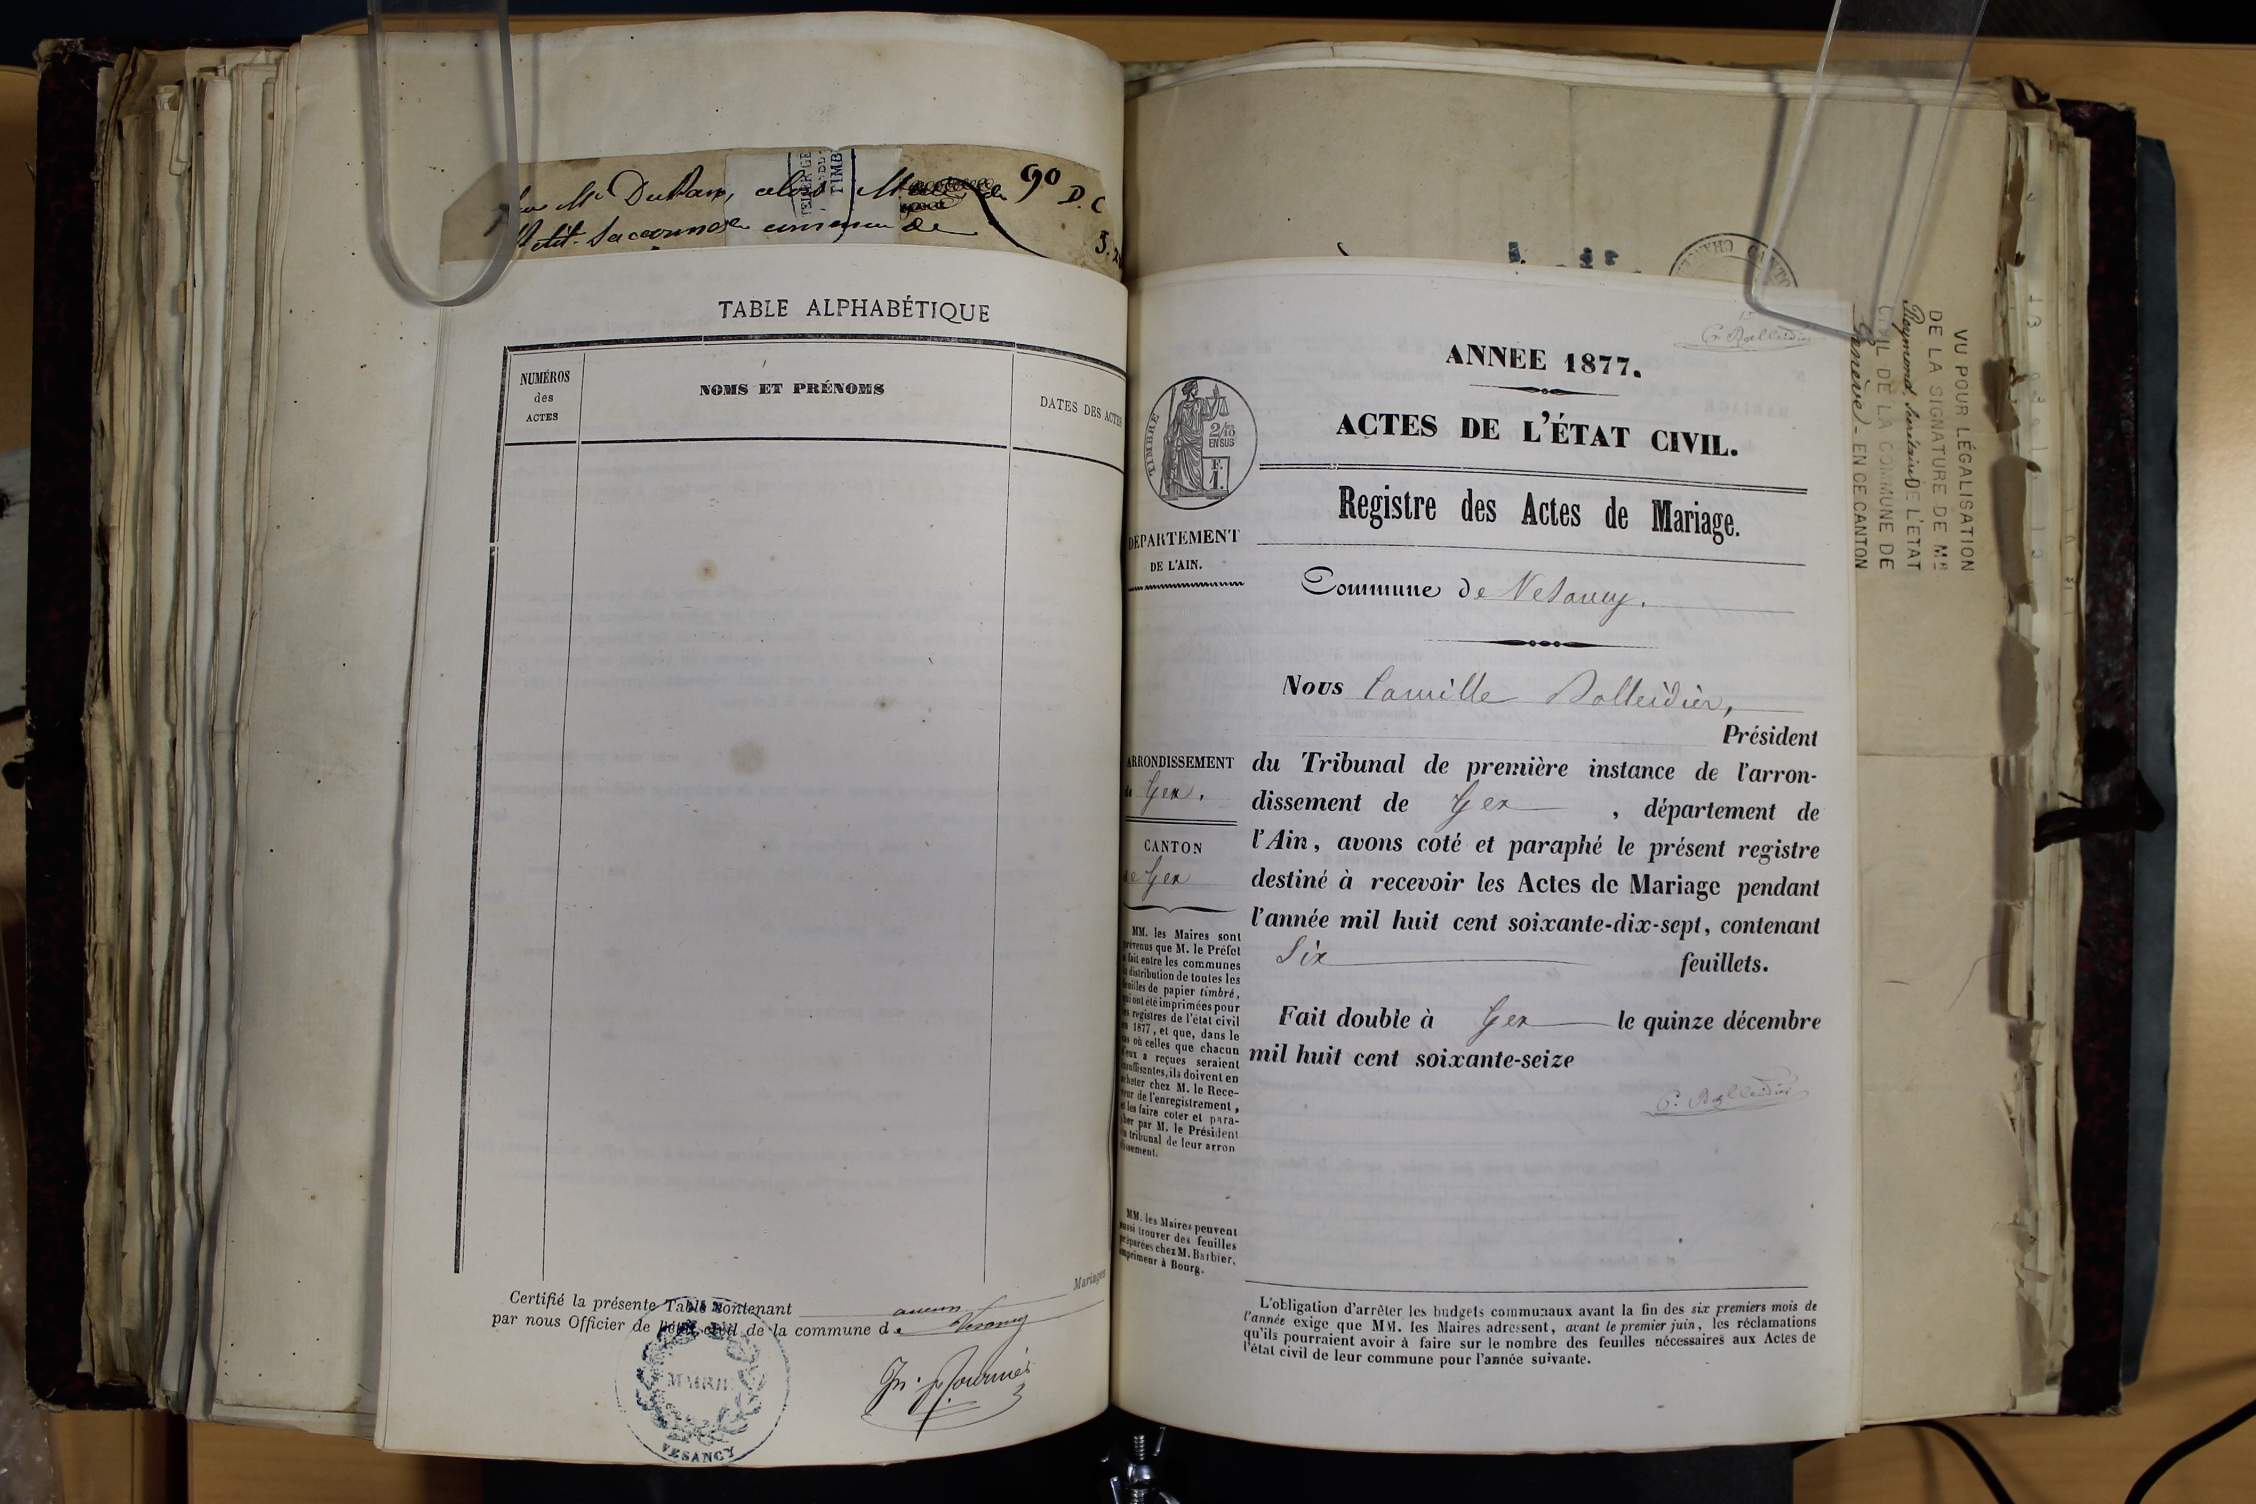 Mr DuPan, alors
90 D. C
Petit-Saconnex de
TIMB
TABLE ALPHABÉTIQUE
NUMÉROS
des
ACTES
NOMS ET PRÉNOMS
DATES DES ACTES
Mariages
Certifié la présente Table contenant aucun
par nous Officier de l'état civil de la commune de Vesancy
MAIRIE
VESANCY
C. Bolleidier
ANNEE 1877.
ACTES DE L'ÉTAT CIVIL.
Registre des Actes de Mariage.
Commune de Vesancy.
TIMBRE
2/10
EN SUS
F.
1.
DÉPARTEMENT
DE L'AIN.
Nous Camille Bolleidier,
Président
du Tribunal de première instance de l'arron-
dissement de Gex, département de
l'Ain, avons coté et paraphé le présent registre
destiné à recevoir les Actes de Mariage pendant
l'année mil huit cent soixante-dix-sept, contenant
Six feuillets.
Fait double à Gex le quinze décembre
mil huit cent soixante-seize
C. Bolleidier
ARRONDISSEMENT
de Gex.
CANTON
de Gex
MM. les Maires sont
prévenus que M. le Préfet
a fait entre les communes
la distribution de toutes les
feuilles de papier timbré,
qui ont été imprimées pour
les registres de l'état civil
en 1877, et que, dans le
cas où celles que chacun
d'eux a reçues seraient
insuffisantes, ils doivent en
acheter chez M. le Rece-
veur de l'enregistrement,
et les faire coter et para-
pher par M. le Président
du tribunal de leur arron
dissement.
MM. les Maires peuvent
aussi trouver des feuilles
préparées chez M. Barbier,
imprimeur à Bourg.
L'obligation d'arrêter les budgets communaux avant la fin des six premiers mois de
l'année exige que MM. les Maires adressent, avant le premier juin, les réclamations
qu'ils pourraient avoir à faire sur le nombre des feuilles nécessaires aux Actes de
l'état civil de leur commune pour l'année suivante.
VU POUR LÉGALISATION
DE LA SIGNATURE DE MR
Raymond, Secrétaire DE L'ÉTAT
CIVIL DE LA COMMUNE DE
Genève - EN CE CANTON